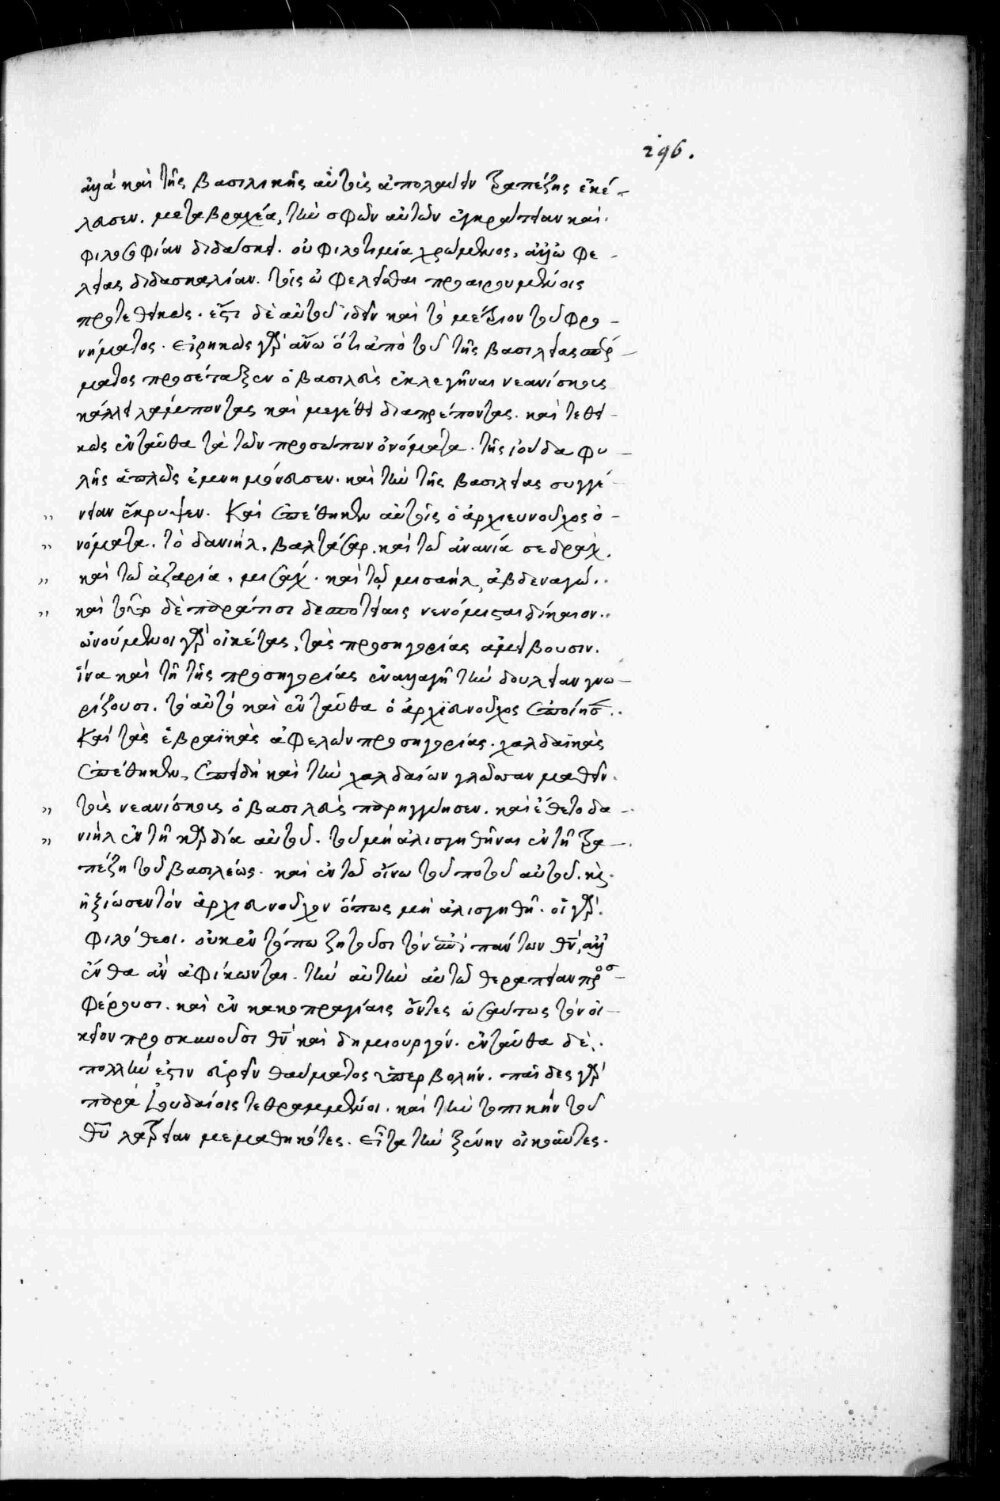 296.
ἀλλὰ καὶ τῆς βασιλικῆς αὐτοῖς ἀπολαύειν τραπέζης ἐκέ-
λευσεν. μετὰ βραχέα, τὴν σφῶν αὐτῶν ἐγκράτειαν καὶ
φιλοσοφίαν διδάσκει. οὐ φιλοτιμία χρώμενος, ἀλλ' ὠφε-
λείας διδασκαλίαν. τοῖς ὠφελεῖσθαι προαιρουμένοις
προτεθεικώς. ἔστι δὲ αὐτοῦ ἰδεῖν καὶ τὸ μέτριον τοῦ φρο-
νήματος. εἰρηκὼς γὰρ ἄνω ὅτι ἀπὸ τοῦ τῆς βασιλείας σπέρ-
ματος προσέταξεν ὁ βασιλεὺς ἐκλεγῆναι νεανίσκους
κάλλει λάμποντας καὶ μεγέθει διαπρέποντας. καὶ τεθει-
κὼς ἐνταῦθα τὰ τῶν προσώπων ὀνόματα. τῆς ἰούδα φυ-
λῆς ἁπλῶς ἐμνημόνευσεν. καὶ τὴν τῆς βασιλείας συγγέ-
νειαν ἔκρυψεν. Καὶ ἐπέθηκεν αὐτοῖς ὁ ἀρχιευνοῦχος ὀ-
νόματα. τῷ δανιὴλ, βαλτάσαρ. καὶ τῷ ἀνανία σεδράχ.
καὶ τῷ ἀζαρία, μισάχ. καὶ τῷ μισαὴλ, ἀβδεναγώ.
καὶ τοῦτο δὲ παρά τισι δεσπόταις νενόμισται δίκαιον.
ὠνούμενοι γὰρ οἰκέτας, τὰς προσηγορίας ἀμείβουσιν.
ἵνα καὶ τῇ τῆς προσηγορίας ἐναλλαγῇ τὴν δουλείαν γνω-
ρίζουσι. τὸ αὐτὸ καὶ ἐνταῦθα ὁ ἀρχιευνοῦχος ἐποίησε.
Καὶ τὰς ἑβραϊκὰς ἀφελὼν προσηγορίας. χαλδαϊκὰς
ἐπέθηκεν, ἐπειδὴ καὶ τὴν χαλδαίων γλῶσσαν μαθεῖν.
τοὺς νεανίσκους ὁ βασιλεὺς παρηγγύησεν. καὶ ἔθετο δα-
νιὴλ ἐν τῇ καρδία αὐτοῦ. τοῦ μὴ ἀλισγηθῆναι ἐν τῇ τρα-
πέζῃ τοῦ βασιλέως. καὶ ἐν τῷ οἴνω τοῦ ποτοῦ αὐτοῦ. κ(αὶ)
ἠξίωσεν τὸν ἀρχιευνοῦχον ὅπως μὴ ἀλισγηθῇ. οἱ γὰρ
φιλόθεοι. οὐκ ἐν τόπω ζητοῦσι τὸν ἁπάντων θν, ἀλλ'
ἔνθα ἂν ἀφίκωνται. τὴν αὐτὴν αὐτῷ θεραπείαν προσ-
φέρουσι. καὶ ἐν κακοπραγίαις ὄντες ὡσαύτως τὸν οἰ-
κεῖον προσκυνοῦσι θν καὶ δημιουργόν. ἐνταῦθα δὲ.
πολλὴν ἔστιν εὑρεῖν θαύματος ὑπερβολήν. παῖδες γὰρ
παρὰ Ἰουδαίοις τεθραμμένοι. καὶ τὴν τοπικὴν τοῦ
θυ λατρείαν μεμαθηκότες. εἶτα τὴν ξένην οἰκοῦντες.